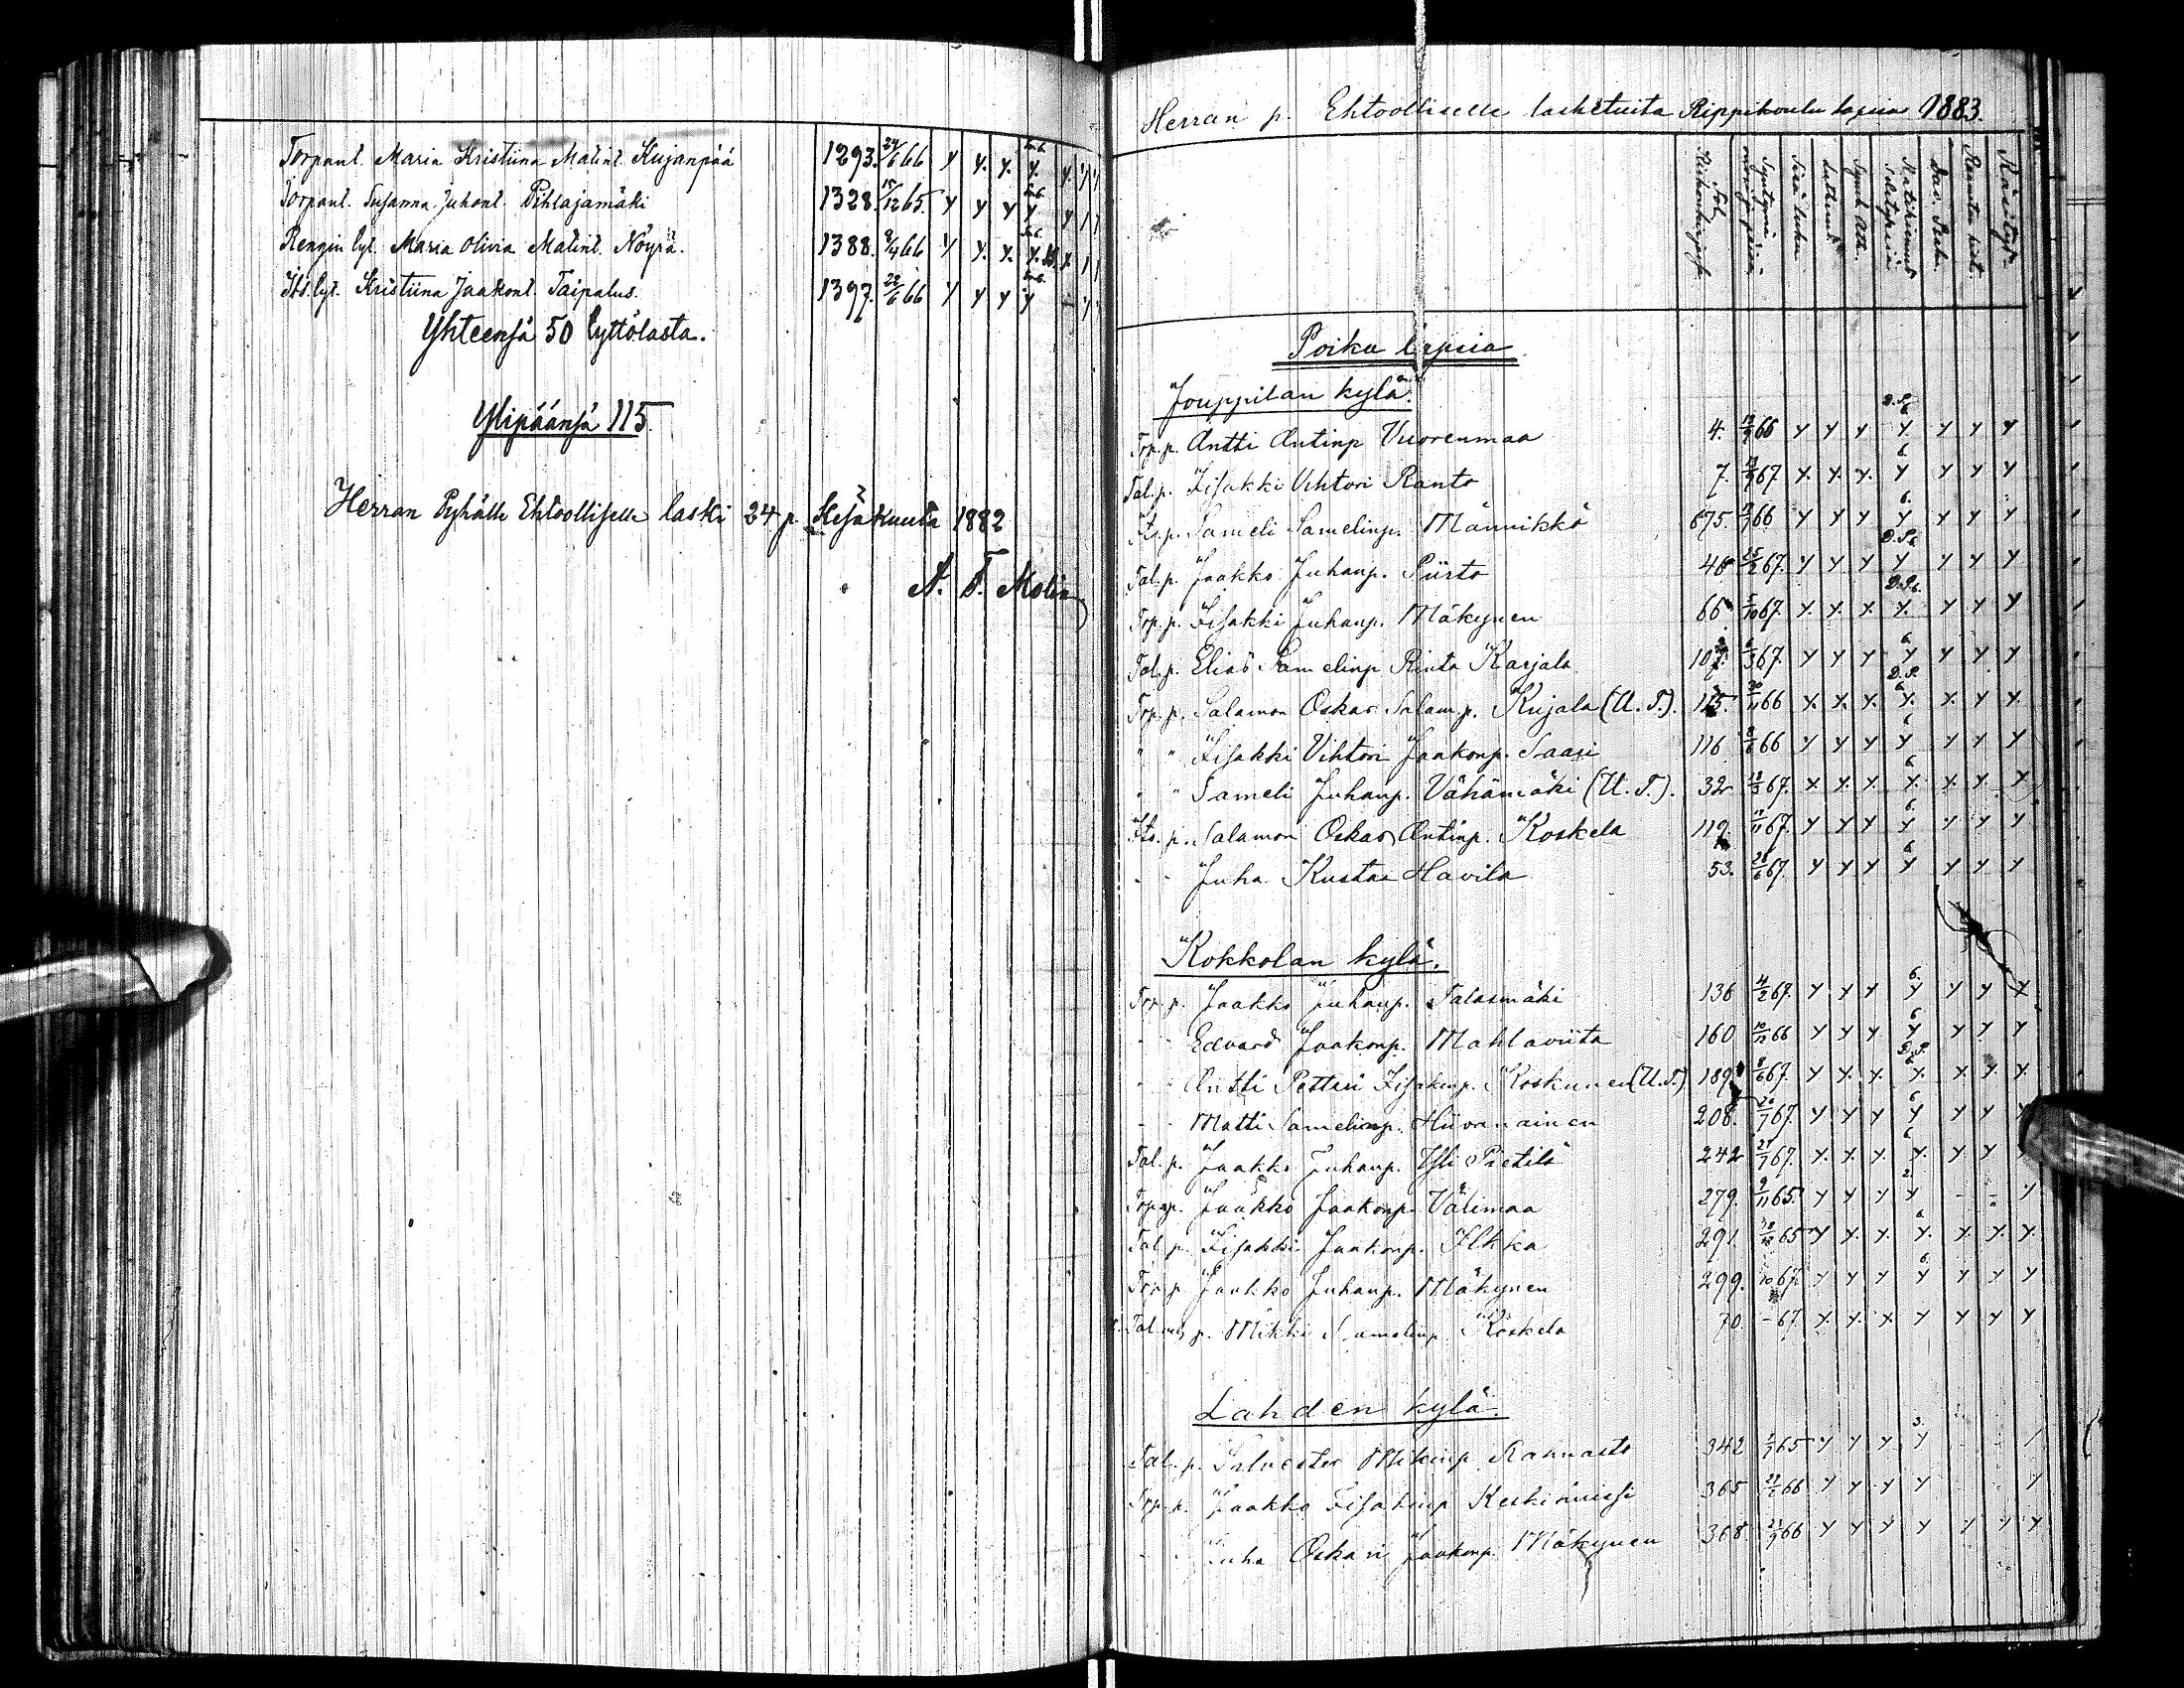 Torpant. Maria Kristiina Matint. Kujanpää 1293. 24/6 66 y y. y. y. y. y y
Torpant. Susanna Juhont. Pihlajamäki 1328. 15/12 65. y y y y y y y
Rengin tyt. Maria Olivia Matint. Nöyrä. 1388. 9/4 66 y y. y. y. y. y y
Its. tyt. Kristiina Jaakont. Taipalus. 1397. 22/6 66 y y y y - y y
Yhteensä 50 tyttölasta.
Ylipäänsä 115.
Herran Pyhälle Ehtoolliselle laski 24 p. Kesäkuuta 1882
A. F. Molin
Herran p. Ehtoolliselle lasketuita Rippikoulu lapsia 1883.
Fol. Rikonkirjassa
Syntymä vuosi ja päivä
Sisä luku
Luther.
Symb. Ath.
Katekismus selityksiä
Dav. Ps.
Raamatu hist.
Käsitys
Poika lapsia
Jouppilan kylä.
Torp. p. Antti Antinp Vuorenmaa 4. 66 y y y y y y y
Tal. p. Iisakki Vihtori Ranto 7. 67 y. y. y. y y y y
Its. p. Sameli Samelinp. Männikkö 675. 66 y y y y y y y
Tal. p. Jaakko Juhanp. Piirto 48 25/2 67. y y y y y y y
Torp. p. Iisakki Juhanp. Mäkynen 66. 5/10 67. y. y. y. y. y y y
Tal. p. Elias Samelinp Rinta Karjala 107. 6/3 67. y y y y y y y
Torp. p. Salamon Oskar Salam. p. Kujala (U. T.). 115. 30/11 66 y. y. y. y. y. y y.
" " Iisakki Vihtori Jaakonp. Saari 116 8/6 66 y y y y y y y
" " Sameli Juhanp. Vähämäki (U. T.). 32 18/3 67. y. y. y. y. y. y. y
Its. p. Salamon Oskar Antinp. Koskela 119. 17/11 67. y y y y y y y
" " Juha Kustaa Havila 53. 28/6 67. y y y y y y y
Kokkolan kylä.
Torp. p. Jaakko Juhanp. Talasmäki 136 4/2 67. y y y y y y y
" " Edvard Jaakonp. Mahlaviita 160 10/12 66 y y y y y y y
" " Antti Petteri Iisakinp. Koskunen (U. T.) 189. 8/6 67. y y. y. y. y. y. y.
" " Matti Samelinp. Hiironainen 208. 26/7 67. y y y y y y y
Tal. p. Jaakko Juhanp. Yli Pietilä 242 27/7 67. y. y. y. y. y y
Torp. p. Jaakko Jaakonp. Välimaa 279. 9/11 65. y y y y - - y
Tal. p. Iisakki Jaakonp. Ilkka 291. 65 y y. y. y. y. y. y.
Torp. p Jaakko Juhanp. Mäkynen 299. 10 67. y y y y y y y
Tal. p. Mikki Samelinp. Koskela 70. - 67. y. y. y y y y y
Lahden kylä.
Tal. p. Salvester Mikinp. Rannasto 342 65 y y y y - - y
Torp. p. Jaakko Iisakinp 365 66 y y y y y
" " Juha Oskari Jaakonp. Mäkynen 368 66 y y y y y y y